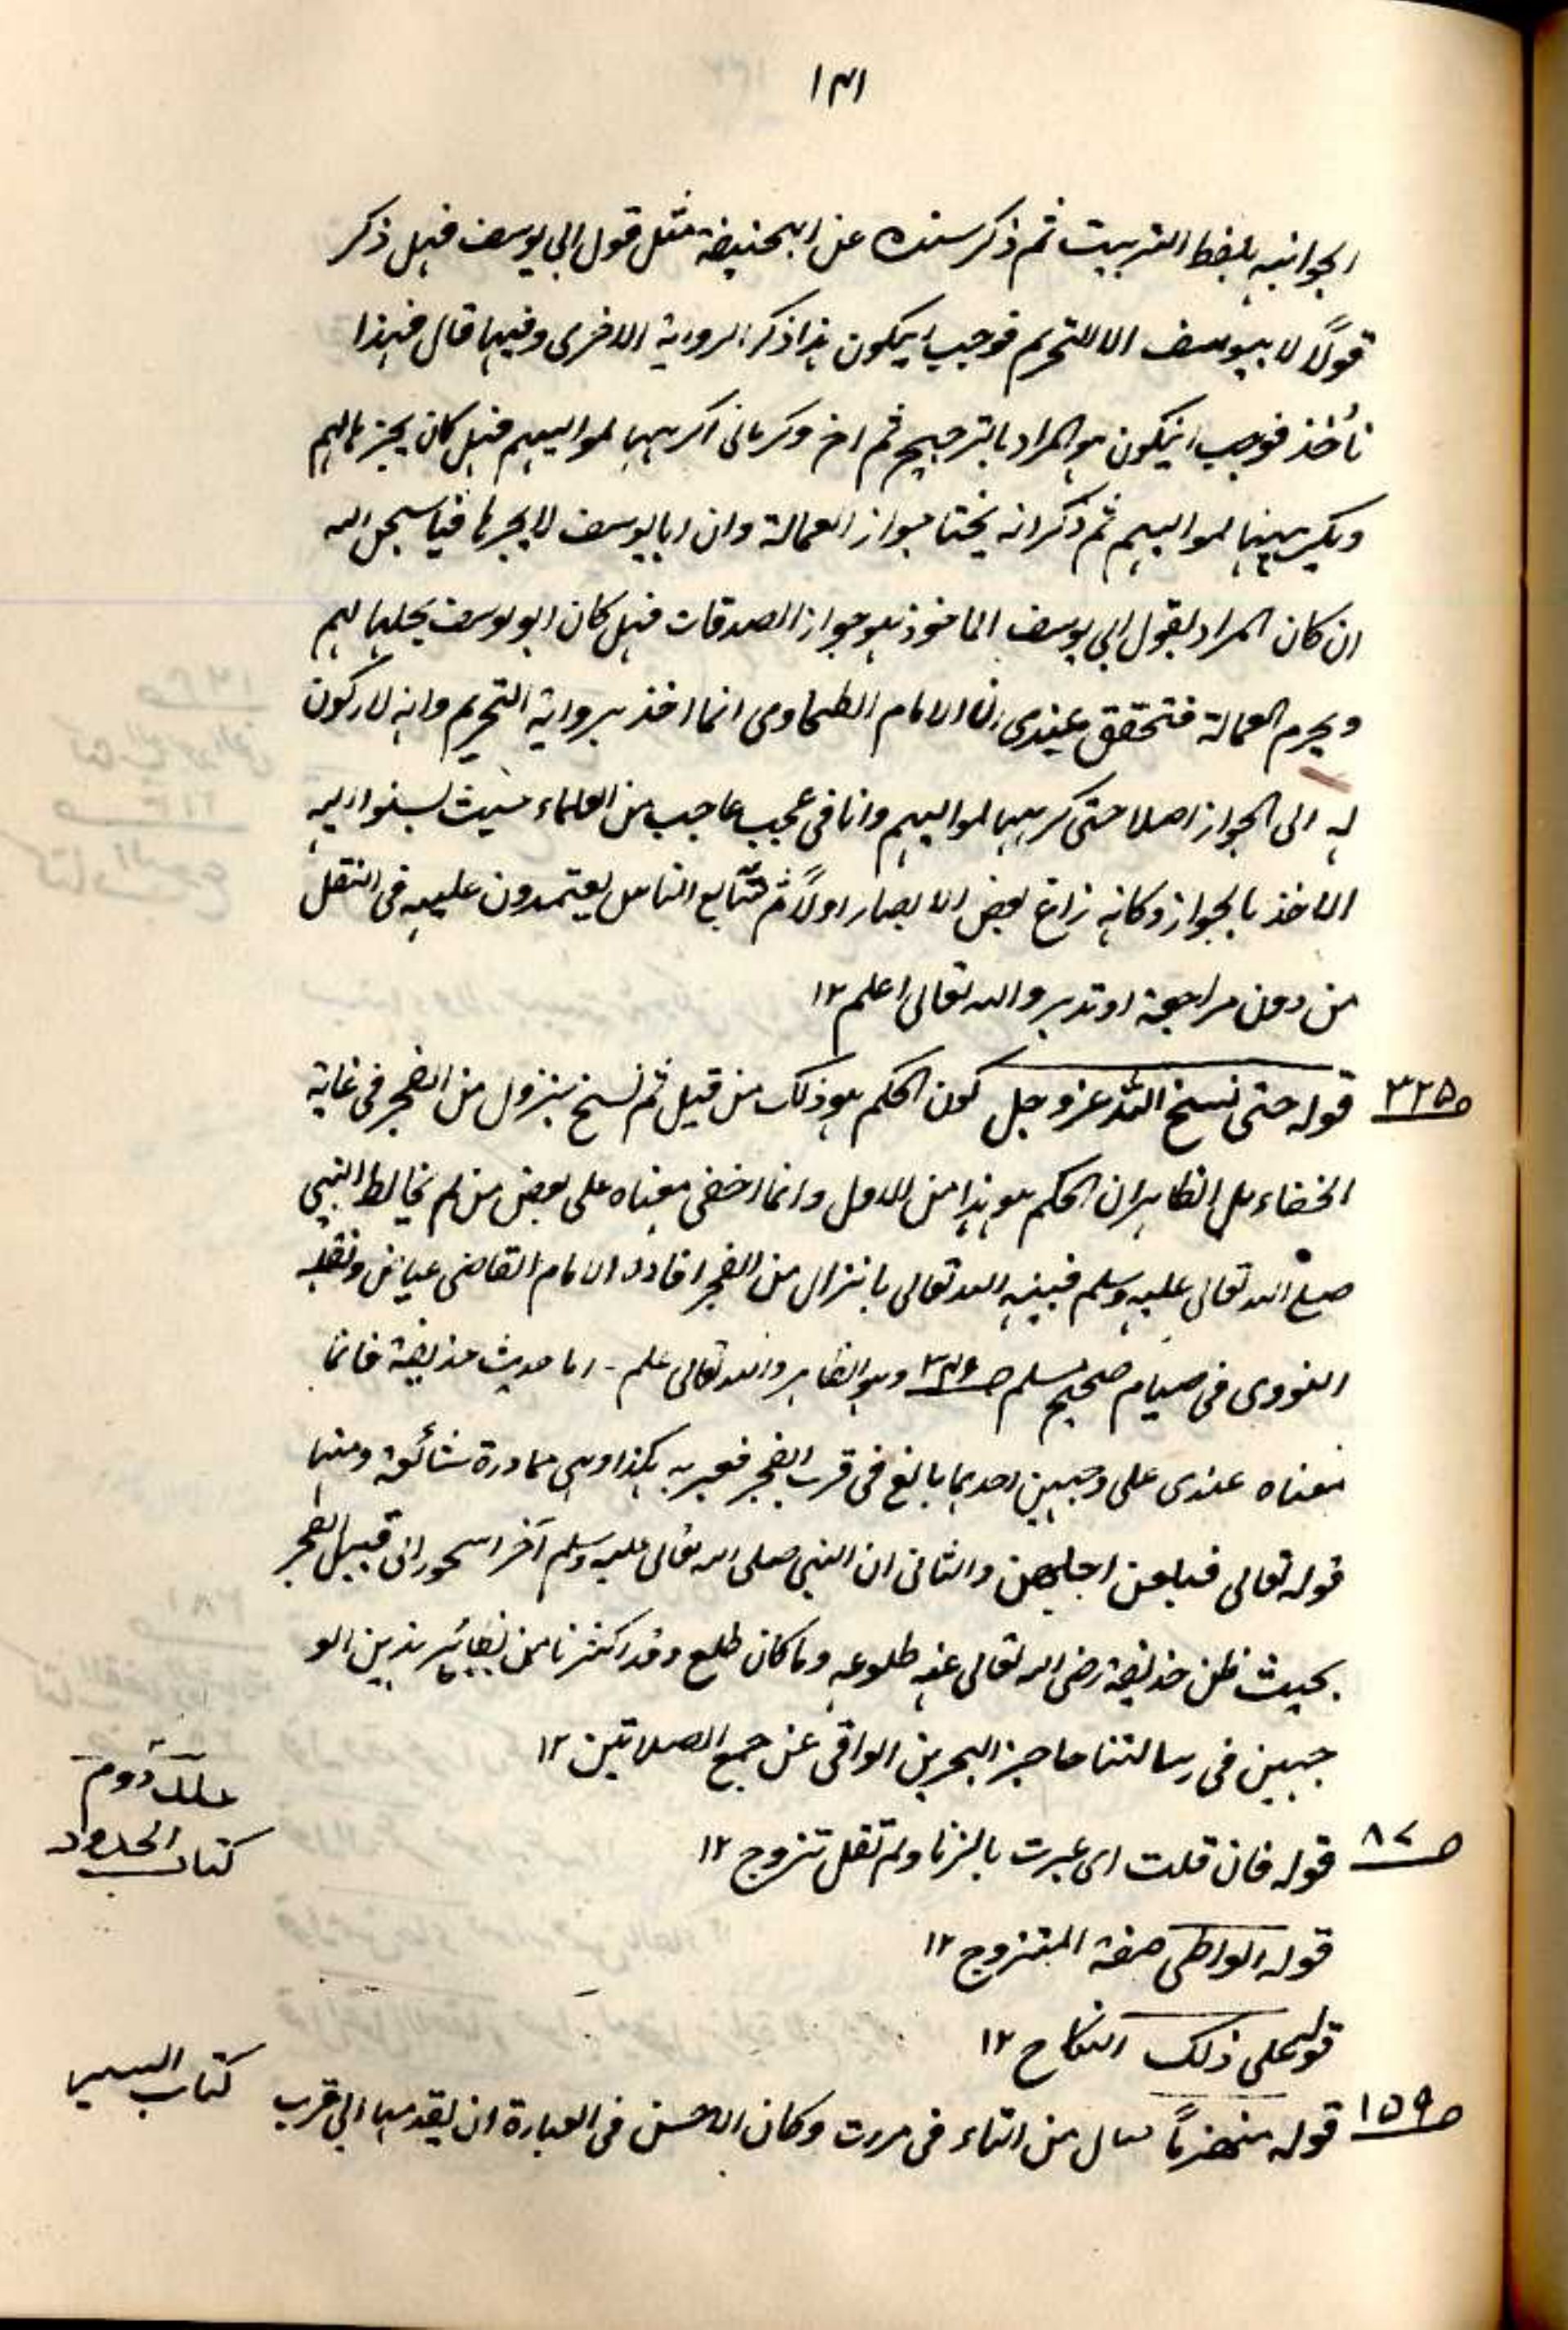 ١٣١
الجوانبه بلفظ التربيت ثم ذكر سنده عن ابيحنيفة مثل قول ابي يوسف فهل ذكر
قولاً لابيوسف الا للتحريم فوجب ايكون هذا ذكر الرواية الاخرى وفيها قال فبهذا
نأخذ فوجب انيكون هو المراد بالترجيح ثم اخر وكر مانى اكرهها لمواليهم فهل كان يجيزها لهم
ويكرههنها لمواليهم ثم ذكر انه يختا جواز العمالة وان ابايوسف لا يجيرها فيا سبحن الله
ان كان المراد بقول ابي يوسف الماخوذ هو جواز الصدقات فهل كان ابو يوسف يحلها لهم
ويحرم العمالة فتحقق عندى ان الامام الطحاوى انما اخذ برواية التحريم وانه لا ركون
له الى الجواز اصلا حتى كرهها لمواليهم وانا فى عجب عاجب من العلماء حيث نسبوا اليه
الاخذ بالجواز وكانه زاغ بعض الابصار اولاً ثم تتابع الناس يعتمدون عليه فى النقل
من دون مراجعة او تدبر والله تعالى اعلم ١٢
ص٣٢٥ قوله حتى نسخ الله عز وجل كون الحكم هو ذلك من قبل ثم نسخ بنزول من الفجر فى غاية
الخفاء بل الظاهر ان الحكم هو هذا من الاول وانما اخفى معناه على بعض من لم يخالط النبى
صلى الله تعالى عليه وسلم فبينه الله تعالى بانزال من الفجر افاده الامام القاضى عياض ونقله
النووى فى صيام صحيح مسلم ص٣٤٩ وهو الظاهر والله تعالى علم - اما حديث حذيفة فانما
معناه عندى على وجهين احدهما بالغ فى قرب الفجر فعبر به هكذا وهى محاورة شائعة ومنها
قوله تعالى فبلغن اجلهن والثانى ان النبى صلى الله تعالى عليه وسلم آخر السحور الى قبيل الفجر
بحيث ظن حذيفة رضى الله تعالى عنه طلوعه وما كان طلع وقد اكثرنا من نظائر هذين الو
جهين فى رسالتنا حاجز البحرين الواقى عن جمع الصلاتين ١٢
جلد دوم
كتاب الحدود
ص٨٧ قوله فان قلت اى عبرت بالزنا ولم تقل تزوج ١٢
قوله الواطى صفة المتزوج ١٢
قوله على ذلك النكاح ١٢
كتاب السير
ص١٥٩ قوله منهزماً حال من التاء فى مررت وكان الاحسن فى العبارة ان يقدمها الى قرب